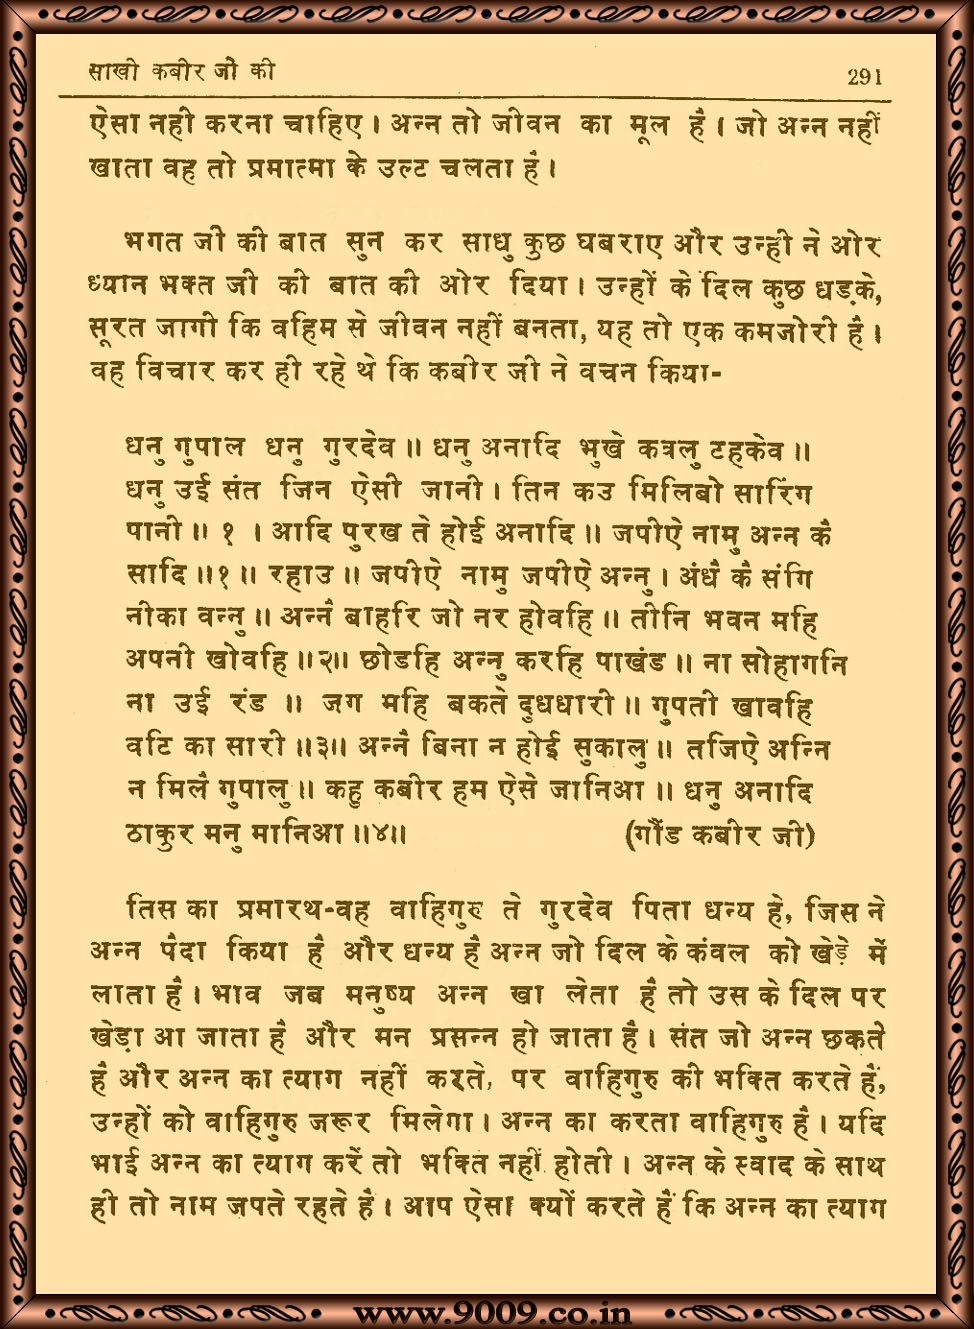 साखी कबीर जी की
291
ऐसा नही करना चाहिए। अन्न तो जीवन का मूल है। जो अन्न नहीं
खाता वह तो प्रमात्मा के उल्ट चलता है।
भगत जी की बात सुन कर साधु कुछ घबराए और उन्ही ने ओर
ध्यान भक्त जी की बात की ओर दिया। उन्हों के दिल कुछ धड़के,
सूरत जागी कि वहिम से जीवन नहीं बनता, यह तो एक कमजोरी है।
वह विचार कर ही रहे थे कि कबीर जी ने वचन किया-
धनु गुपाल धनु गुरदेव॥ धनु अनादि भुखे कवलु टहकेव॥
धनु उई संत जिन ऐसी जानी। तिन कउ मिलिबो सारिंग
पानी॥ १ । आदि पुरख ते होई अनादि॥ जपीऐ नामु अन्न कै
सादि॥१॥ रहाउ॥ जपीऐ नामु जपीऐ अन्नु। अंधै कै संगि
नीका वन्नु॥ अन्नै बाहरि जो नर होवहि॥ तीनि भवन महि
अपनी खोवहि॥२॥ छोडहि अन्नु करहि पाखंड॥ ना सोहागनि
ना उई रंड ॥ जग महि बकते दुधधारी॥ गुपती खावहि
वटि का सारी॥३॥ अन्नै बिना न होई सुकालु॥ तजिऐ अन्नि
न मिलै गुपालु॥ कहु कबीर हम ऐसे जानिआ॥ धनु अनादि
ठाकुर मनु मानिआ॥४॥ (गौंड कबीर जी)
तिस का प्रमारथ-वह वाहिगुरु ते गुरदेव पिता धन्य हे, जिस ने
अन्न पैदा किया है और धन्य है अन्न जो दिल के कंवल को खेड़े में
लाता है। भाव जब मनुष्य अन्न खा लेता है तो उस के दिल पर
खेड़ा आ जाता है और मन प्रसन्न हो जाता है। संत जो अन्न छकते
है और अन्न का त्याग नहीं करते, पर वाहिगुरु की भक्ति करते हैं,
उन्हों को वाहिगुरु जरूर मिलेगा। अन्न का करता वाहिगुरु है। यदि
भाई अन्न का त्याग करें तो भक्ति नहीं होती। अन्न के स्वाद के साथ
ही तो नाम जपते रहते है। आप ऐसा क्यों करते हैं कि अन्न का त्याग
www.9009.co.in